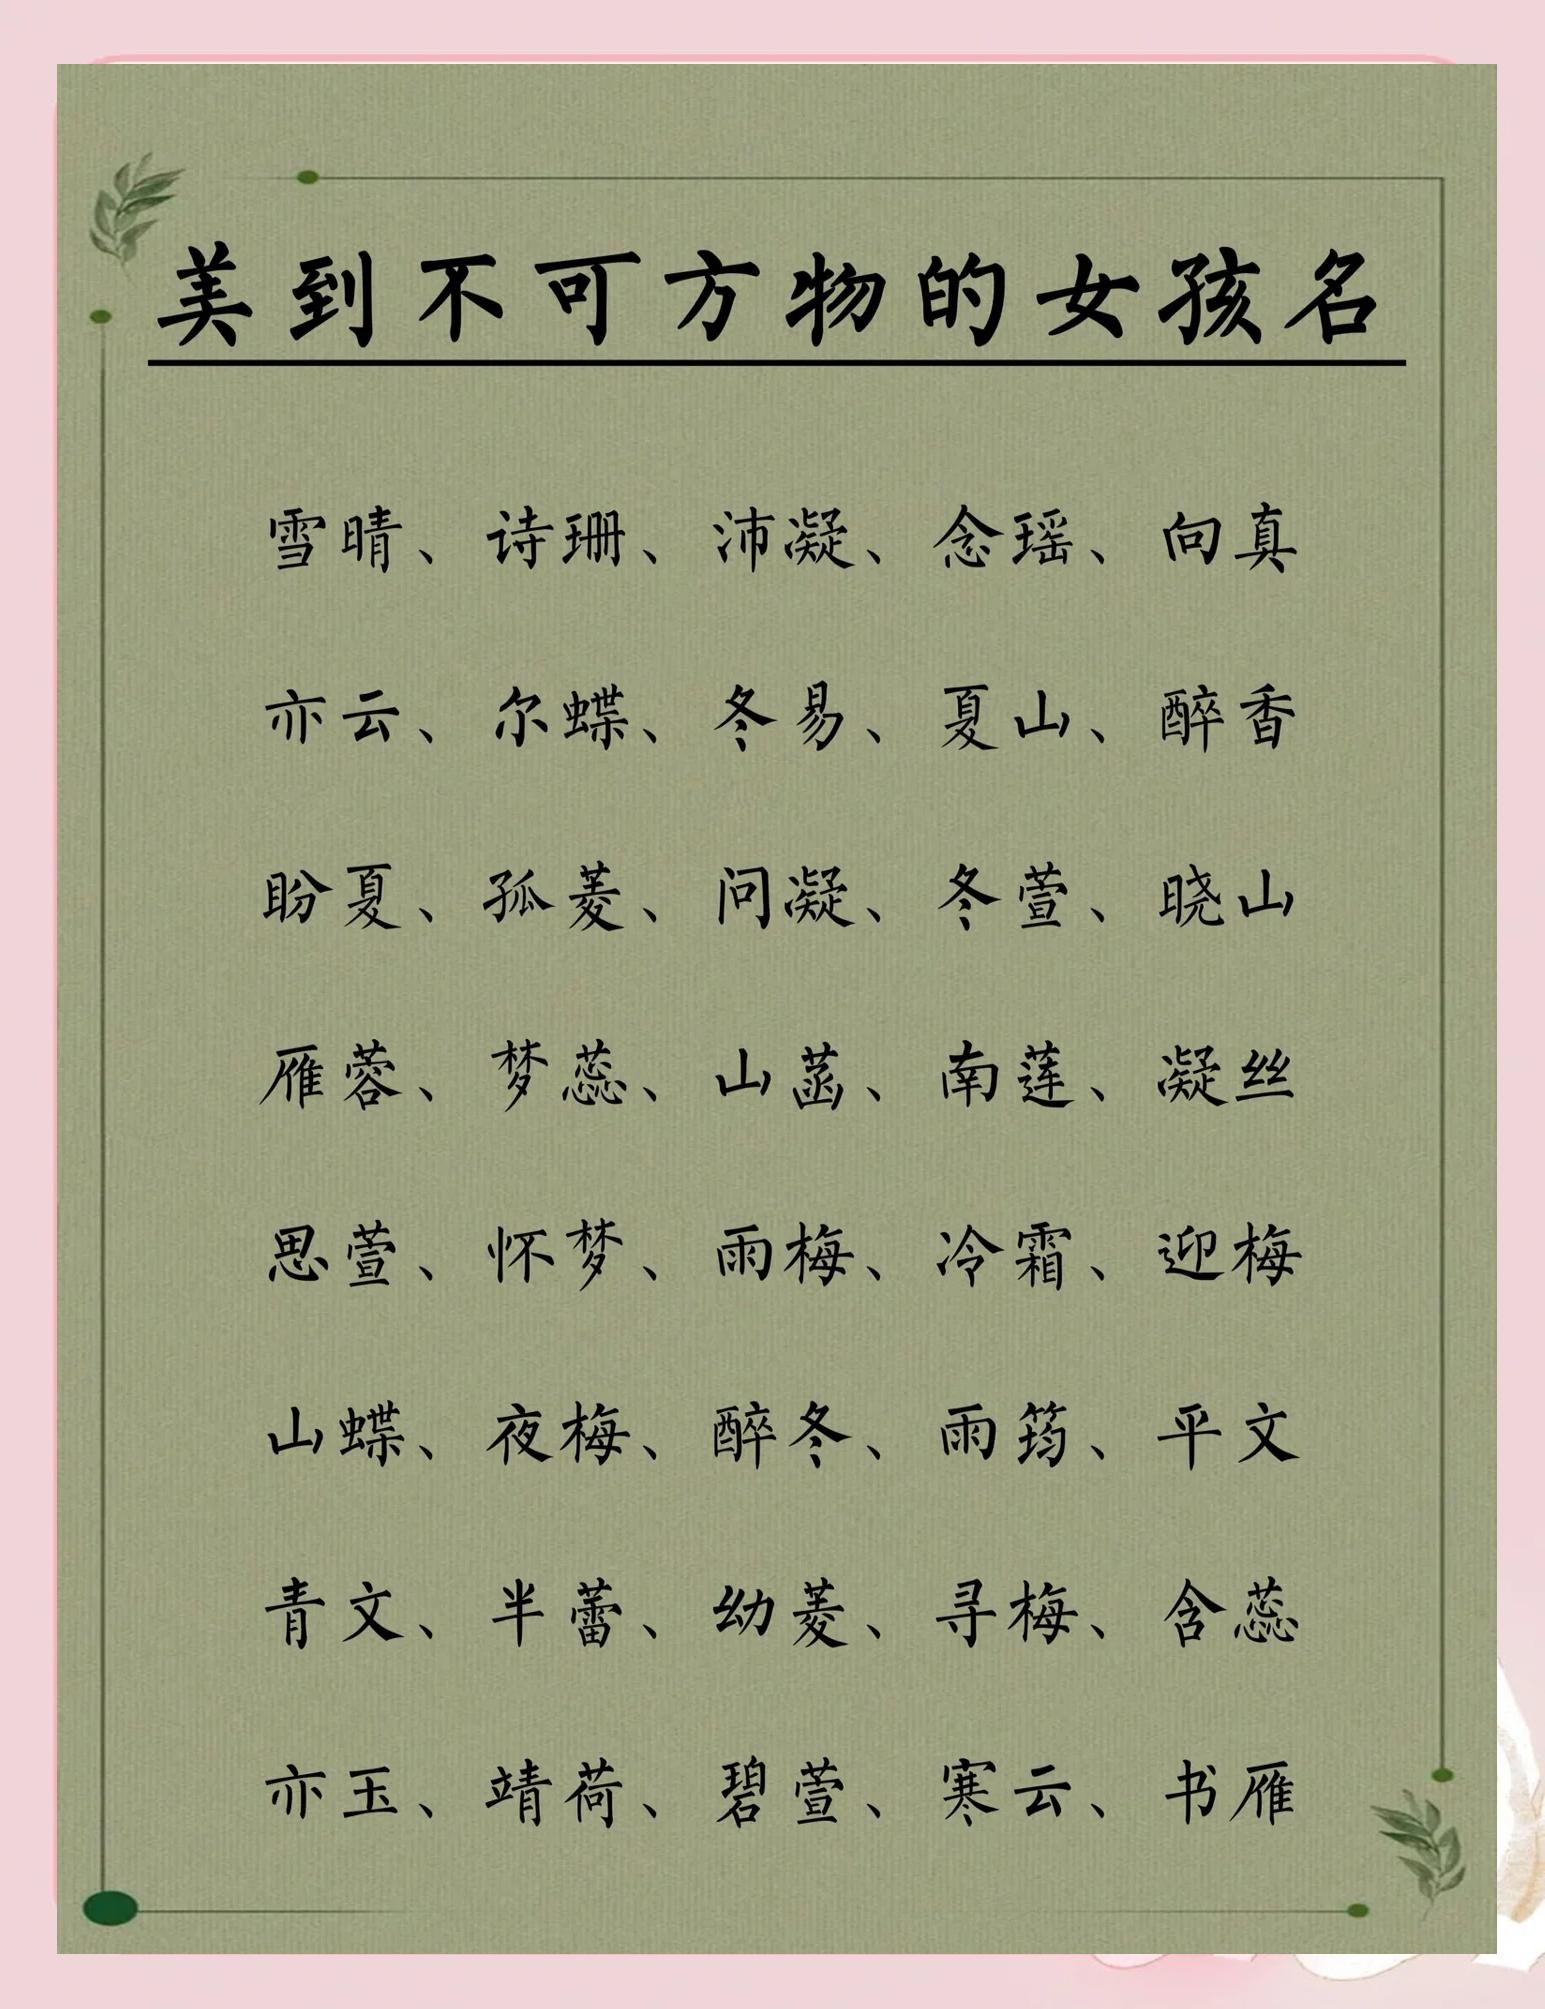 美到不可方物的女孩名
雪晴、诗珊、沛凝、念瑶、向真
亦云、尔蝶、冬易、夏山、醉香
盼夏、孤菱、问凝、冬萱、晓山
雁蓉、梦蕊、山菡、南莲、凝丝
思萱、怀梦、雨梅、冷霜、迎梅
山蝶、夜梅、醉冬、雨筠、平文
青文、半蕾、幼菱、寻梅、含蕊
亦玉、靖荷、碧萱、寒云、书雁